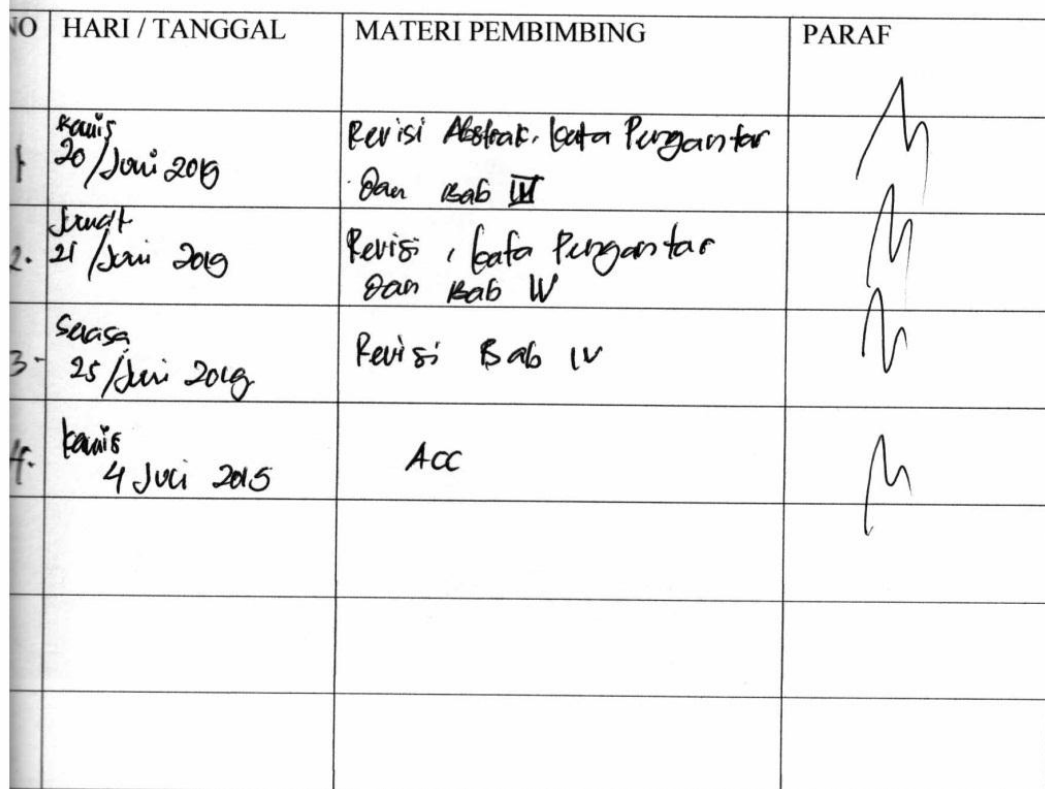 NO HARI / TANGGAL MATERI PEMBIMBING PARAF
1 Kamis
20/Juni 2019
Revisi Abstrak, kata Pengantar
Dan Bab III
2. Jumat
21/Juni 2019
Revisi, kata Pengantar
Dan Bab IV
3- Selasa
25/Juni 2019
Revisi Bab IV
4. Kamis
4 Juli 2019
ACC